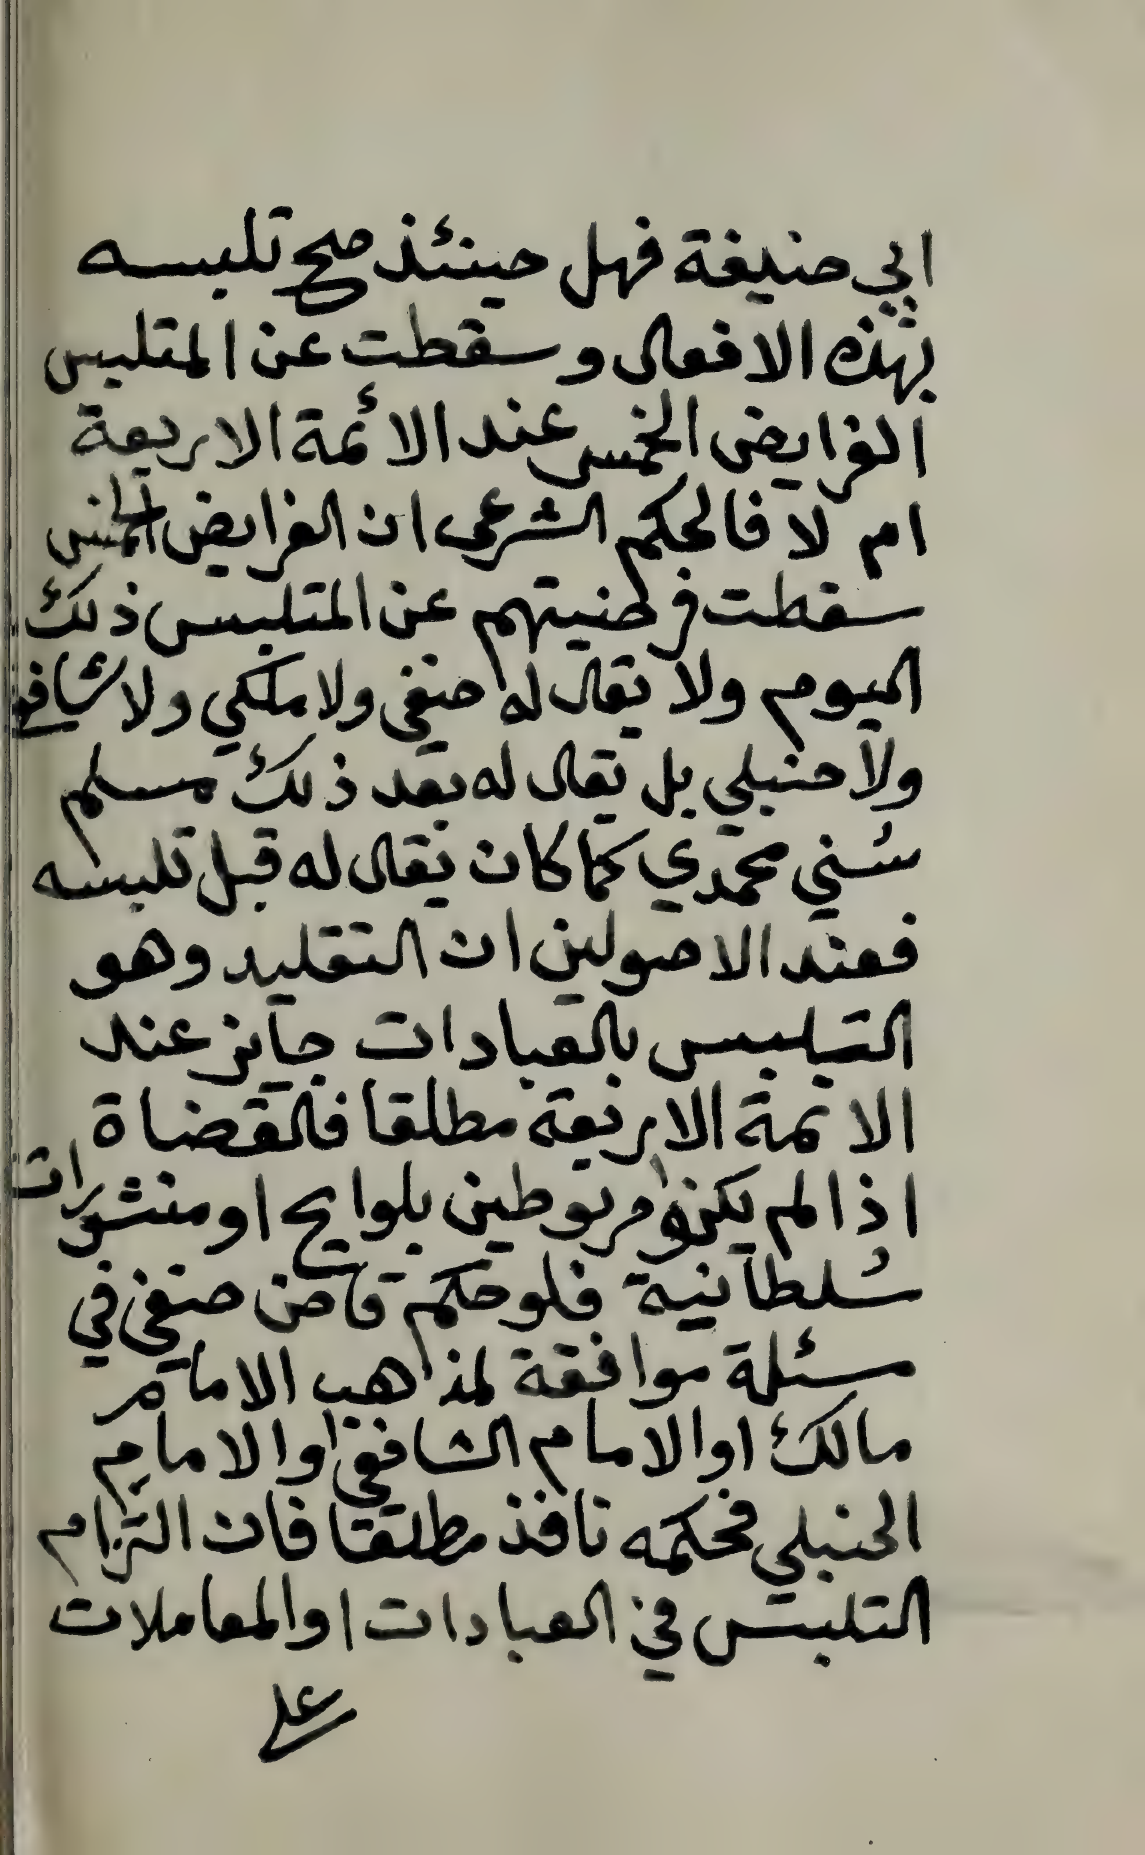 ابي حنيفة فهل حينئذ صح تلبسه
بهذه الافعال وسقطت عن المتلبس
الفرايض الخمس عند الأئمة الاربعة
ام لا فالحكم الشرعى ان الفرايض الخمس
سقطت فرضيتهم عن المتلبس ذلك
اليوم ولا يقال له حنفى ولا ملكي ولا شافعى
ولا حنبلي بل يقال له بعد ذلك مسلم
سُني محمدي كما كان يقال له قبل تلبسه
فعند الاصولين ان التقليد وهو
التلبس بالعبادات جايز عند
الائمة الاربعة مطلقا فالقضاة
اذا لم يكونوا مربوطين بلوايح او منشورات
سُلطانية فلو حكم قاض حنفي في
مسئلة موافقة لمذهب الامام
مالك او الامام الشافعي او الامام
الحنبلي فحكمه نافذ مطلقا فان التزام
التلبس في العبادات او المعاملات
على